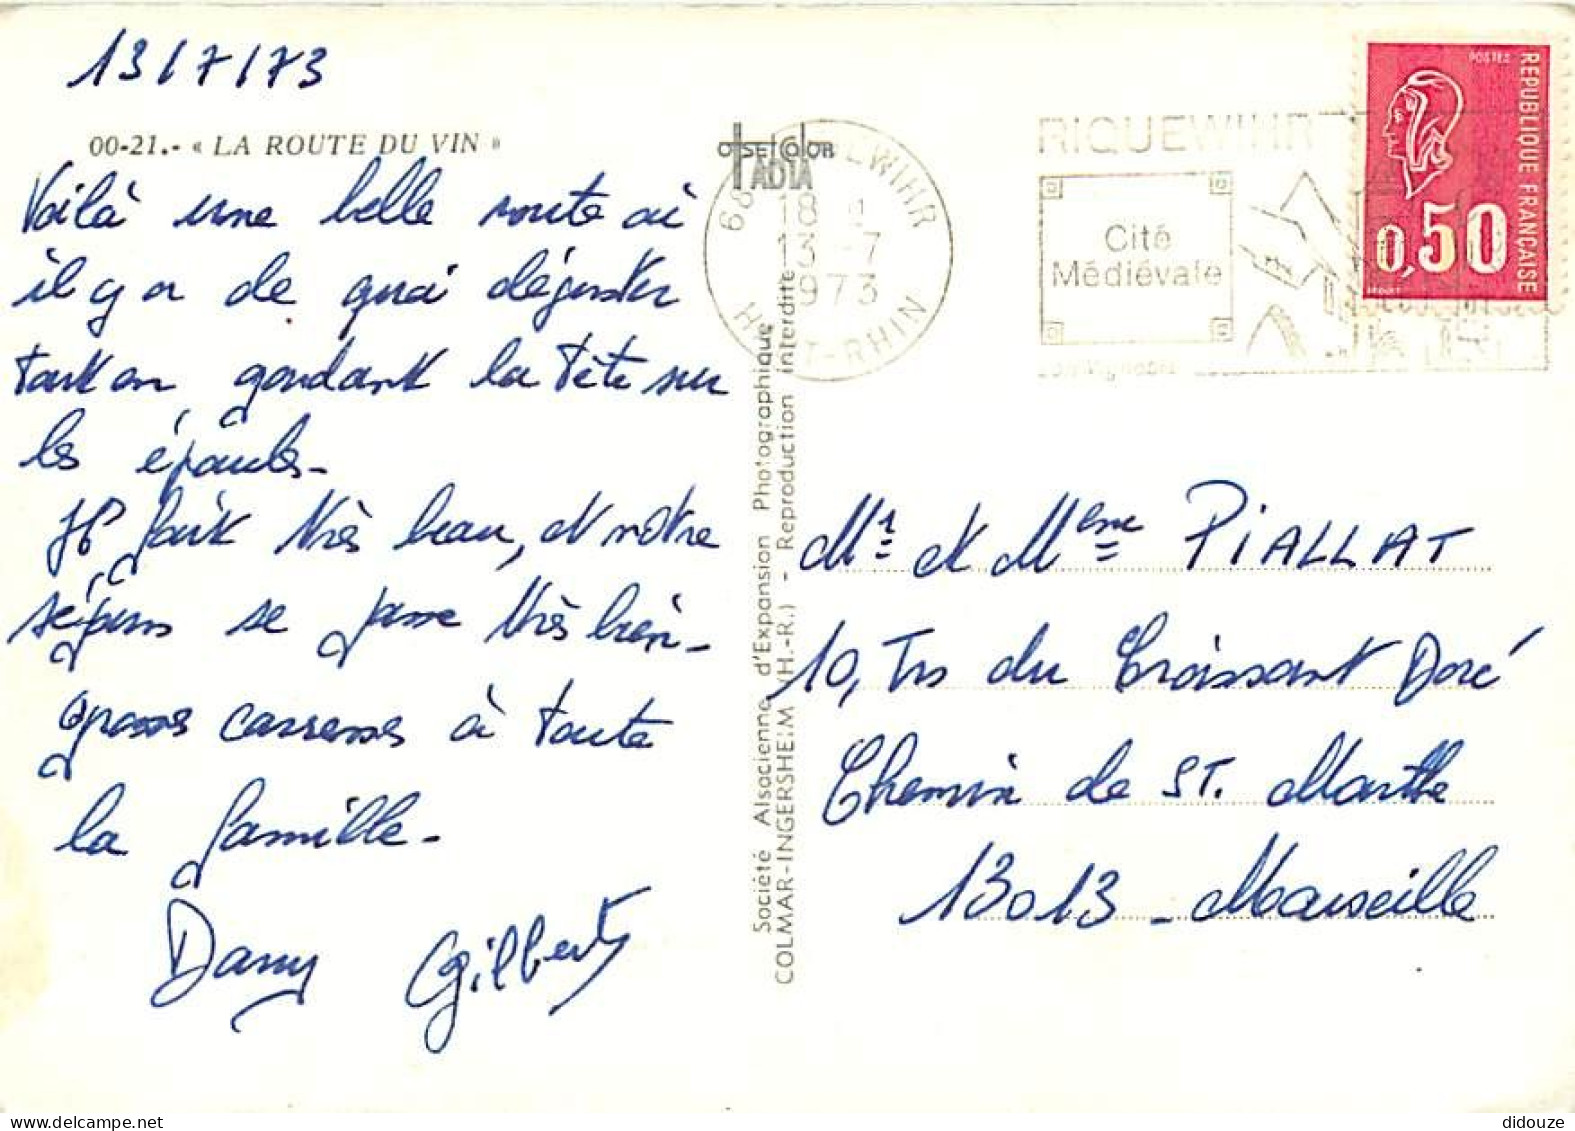 13/7/73
00-21.- « LA ROUTE DU VIN »
Voilà une belle route où
il y a de quoi déguster
tout en gardant la tête sur
les épaules -
Il fait très beau, et notre
séjour se passe très bien -
grosses caresses à toute
la famille -
Dany Gilbert
OFSETCOLOR
IADIA
68 WIHR
18 H
13 -7
1973
HT-RHIN
RIQUEWIHR
Cité
Médiévale
POSTES
REPUBLIQUE FRANÇAISE
0,50
Société Alsacienne d'Expansion Photographique
COLMAR-INGERSHEIM (H.-R.) - Reproduction interdite
Mr et Mme PIALLAT
10, Trs du Croissant Doré
Chemin de ST. Marthe
13013 - Marseille
didouze